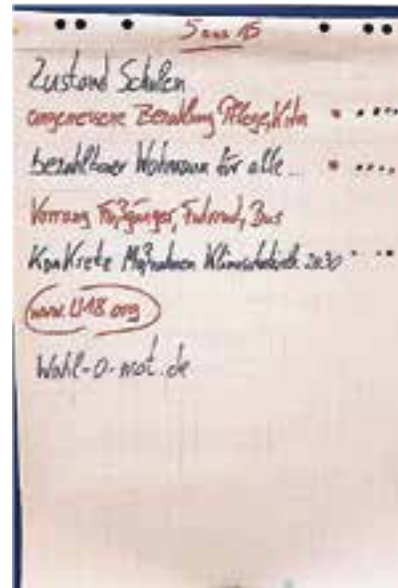 5 aus 15
Zustand Schulen
angemessene Bezahlung Pflege, Kita
bezahlbarer Wohnraum für alle...
Vorrang Fußgänger, Fahrrad, Bus
Konkrete Maßnahmen 2030
www.U18.org
Wahl-o-mat.de